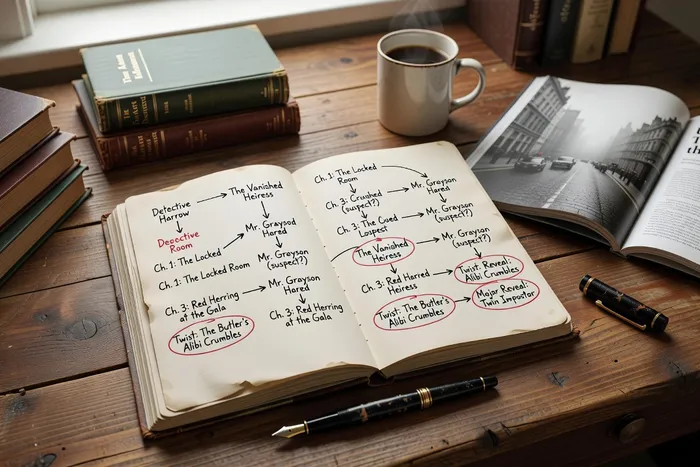 Detective
Harrow
The Vanished
Heiress
Room
Ch. 1: The Locked
Ch. 1: The Locked Room
Mr. Graysod
Hared
Mr. Grayson
(suspect?)
Ch. 3: Red Herring
at the Gala
Mr. Grayson
Hared
Ch. 3: Red Herring
at the Gala
Twist: The Butler's
Alibi Crumbles
Ch. 1: The Locked
Room
Mr. Grayson
Hared
Ch. 3:
(suspect?)
Mr. Grayson
(suspect?)
Ch. 3: The
The Vanished
Heiress
Mr. Grayson
(suspect?)
Ch. 3: Red Harred
Twist: Reveal:
Alibi Crumbles
Twist: The Butler's
Alibi Crumbles
Major Reveal:
Twin Impostor